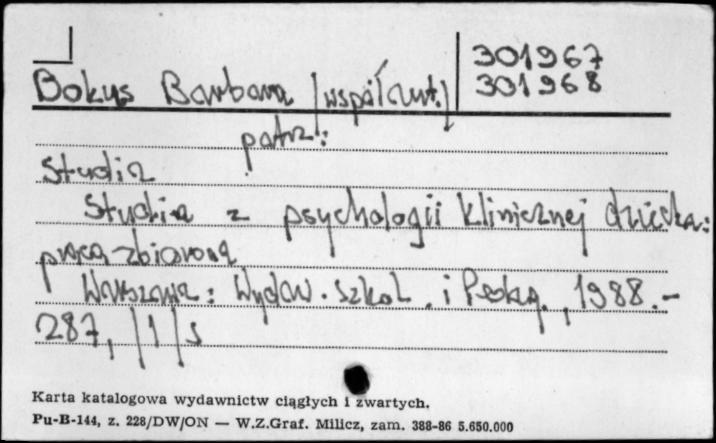 301967
301968
Bokus Barbara /współaut./
patrz:
Studia
Studia z psychologii klinicznej dziecka:
praca zbiorowa
Warszawa: Wydaw. Szkol. i Pedag., 1988.-
287, /1/ s
Karta katalogowa wydawnictw ciągłych i zwartych.
Pu-B-144, z. 228/DW/ON — W.Z.Graf. Milicz, zam. 388-86 5.650.000